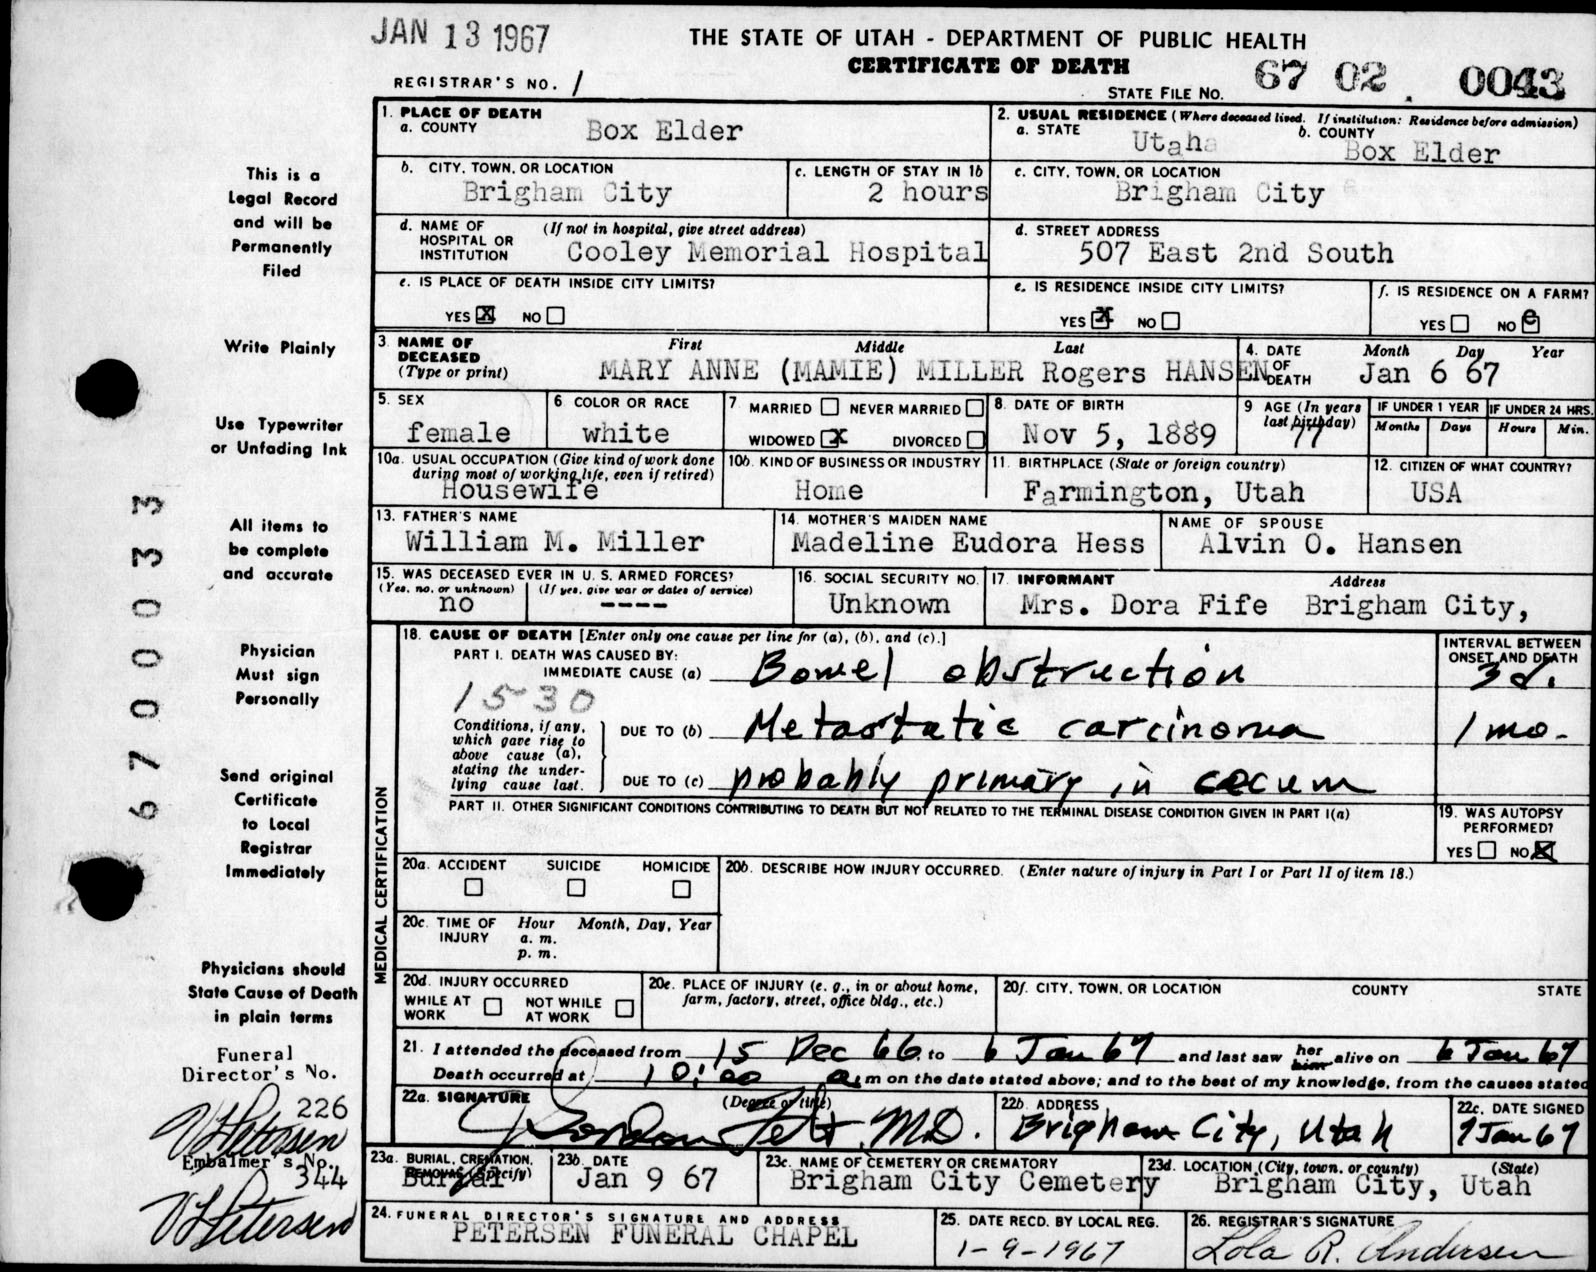 JAN 13 1967
THE STATE OF UTAH - DEPARTMENT OF PUBLIC HEALTH
CERTIFICATE OF DEATH
REGISTRAR'S NO. 1
STATE FILE NO. 67 02 0043
This is a
Legal Record
and will be
Permanently
Filed
Write Plainly
Use Typewriter
or Unfading Ink
All items to
be complete
and accurate
Physician
Must sign
Personally
Send original
Certificate
to Local
Registrar
Immediately
Physicians should
State Cause of Death
in plain terms
Funeral
Director's No.
226
V L Petersen
Embalmer's No.
344
V L Petersen
67 00033
1. PLACE OF DEATH
a. COUNTY Box Elder
2. USUAL RESIDENCE (Where deceased lived. If institution: Residence before admission)
a. STATE Utah b. COUNTY Box Elder
b. CITY, TOWN, OR LOCATION
Brigham City
c. LENGTH OF STAY IN 1b
2 hours
c. CITY, TOWN, OR LOCATION
Brigham City
d. NAME OF HOSPITAL OR INSTITUTION (If not in hospital, give street address)
Cooley Memorial Hospital
d. STREET ADDRESS
507 East 2nd South
e. IS PLACE OF DEATH INSIDE CITY LIMITS?
YES X NO
e. IS RESIDENCE INSIDE CITY LIMITS?
YES X NO
f. IS RESIDENCE ON A FARM?
YES NO e
3. NAME OF DECEASED (Type or print) First Middle Last
MARY ANNE (MAMIE) MILLER Rogers HANSEN
4. DATE OF DEATH Month Day Year
Jan 6 67
5. SEX
female
6 COLOR OR RACE
white
7 MARRIED NEVER MARRIED
WIDOWED X DIVORCED
8. DATE OF BIRTH
Nov 5, 1889
9 AGE (In years last birthday)
77
IF UNDER 1 YEAR IF UNDER 24 HRS.
Months Days Hours Min.
10a. USUAL OCCUPATION (Give kind of work done during most of working life, even if retired)
Housewife
10b. KIND OF BUSINESS OR INDUSTRY
Home
11. BIRTHPLACE (State or foreign country)
Farmington, Utah
12. CITIZEN OF WHAT COUNTRY?
USA
13. FATHER'S NAME
William M. Miller
14. MOTHER'S MAIDEN NAME
Madeline Eudora Hess
NAME OF SPOUSE
Alvin O. Hansen
15. WAS DECEASED EVER IN U. S. ARMED FORCES?
(Yes, no, or unknown) (If yes, give war or dates of service)
no ----
16. SOCIAL SECURITY NO.
Unknown
17. INFORMANT Address
Mrs. Dora Fife Brigham City,
MEDICAL CERTIFICATION
18. CAUSE OF DEATH [Enter only one cause per line for (a), (b), and (c).]
INTERVAL BETWEEN ONSET AND DEATH
PART I. DEATH WAS CAUSED BY:
IMMEDIATE CAUSE (a) Bowel obstruction 3 d.
1530
Conditions, if any, which gave rise to above cause (a), stating the underlying cause last.
DUE TO (b) Metastatic carcinoma 1 mo.
DUE TO (c) probably primary in cecum
PART II. OTHER SIGNIFICANT CONDITIONS CONTRIBUTING TO DEATH BUT NOT RELATED TO THE TERMINAL DISEASE CONDITION GIVEN IN PART I(a)
19. WAS AUTOPSY PERFORMED?
YES NO X
20a. ACCIDENT SUICIDE HOMICIDE
20b. DESCRIBE HOW INJURY OCCURRED. (Enter nature of injury in Part I or Part II of item 18.)
20c. TIME OF INJURY Hour Month, Day, Year
a. m.
p. m.
20d. INJURY OCCURRED
WHILE AT WORK NOT WHILE AT WORK
20e. PLACE OF INJURY (e. g., in or about home, farm, factory, street, office bldg., etc.)
20f. CITY, TOWN, OR LOCATION COUNTY STATE
21. I attended the deceased from 15 Dec 66 to 6 Jan 67 and last saw her him alive on 6 Jan 67
Death occurred at 10:00 a.m on the date stated above; and to the best of my knowledge, from the causes stated
22a. SIGNATURE (Degree or title)
J Gordon Felt, M.D.
22b. ADDRESS
Brigham City, Utah
22c. DATE SIGNED
7 Jan 67
23a. BURIAL, CREMATION, REMOVAL (Specify)
Burial
23b. DATE
Jan 9 67
23c. NAME OF CEMETERY OR CREMATORY
Brigham City Cemetery
23d. LOCATION (City, town, or county) (State)
Brigham City, Utah
24. FUNERAL DIRECTOR'S SIGNATURE AND ADDRESS
PETERSEN FUNERAL CHAPEL
25. DATE RECD. BY LOCAL REG.
1-9-1967
26. REGISTRAR'S SIGNATURE
Lola R. Andersen